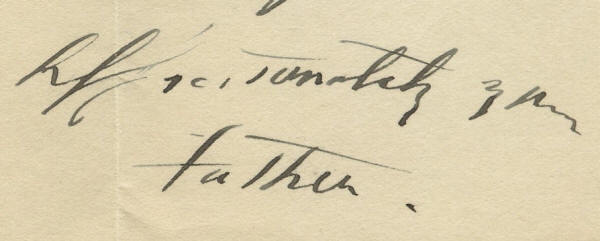 Affectionately your
Father.